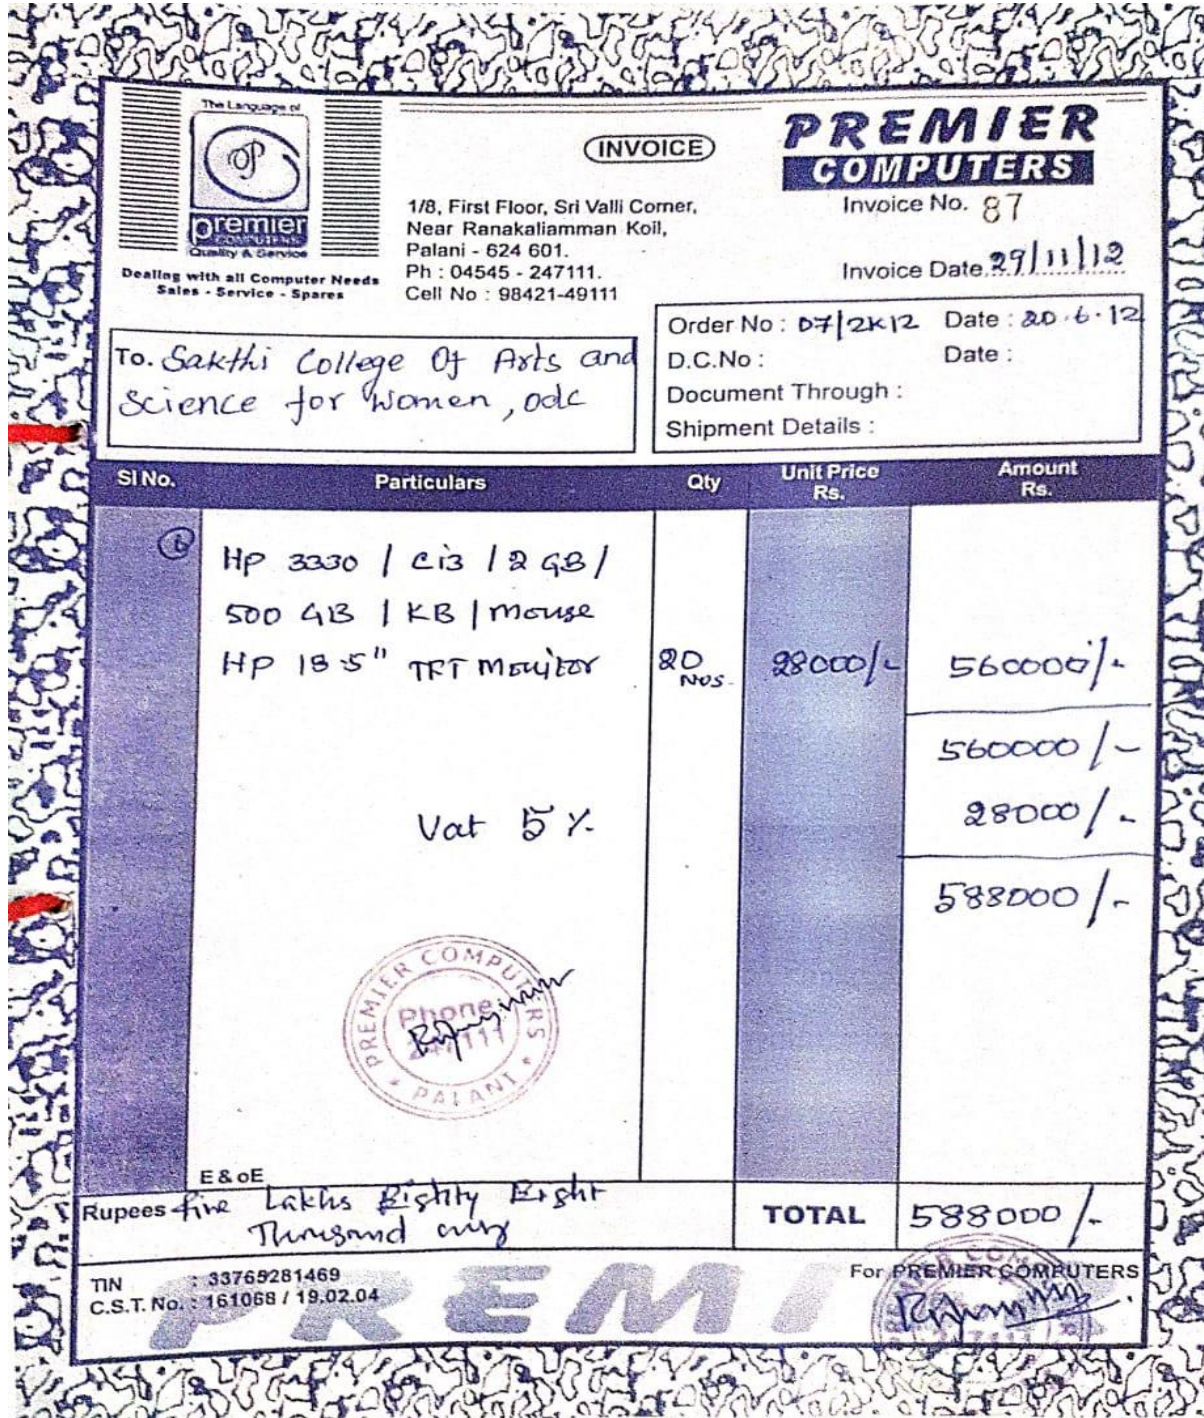 The Language of
premier
COMPUTERS
Quality & Service
Dealing with all Computer Needs
Sales - Service - Spares
INVOICE
1/8, First Floor, Sri Valli Corner,
Near Ranakaliamman Koil,
Palani - 624 601.
Ph : 04545 - 247111.
Cell No : 98421-49111
PREMIER
COMPUTERS
Invoice No. 87
Invoice Date 29/11/12
To. Sakthi College Of Arts and
Science for Women, odc
Order No : 07/2K12 Date : 20.6.12
D.C.No : Date :
Document Through :
Shipment Details :
SI No. Particulars Qty Unit Price Rs. Amount Rs.
HP 3330 / Ci3 / 2 GB /
500 GB / KB / Mouse
HP 18.5" TFT Monitor 20 Nos. 28000/- 560000/-
560000/-
Vat 5 % 28000/-
588000/-
PREMIER COMPUTERS
Phone
247111
PALANI
E & oE
Rupees Five Lakhs Eighty Eight
Thousand only
TOTAL 588000/-
TIN : 33765281469
C.S.T. No. : 161068 / 19.02.04
For PREMIER COMPUTERS
PREMI